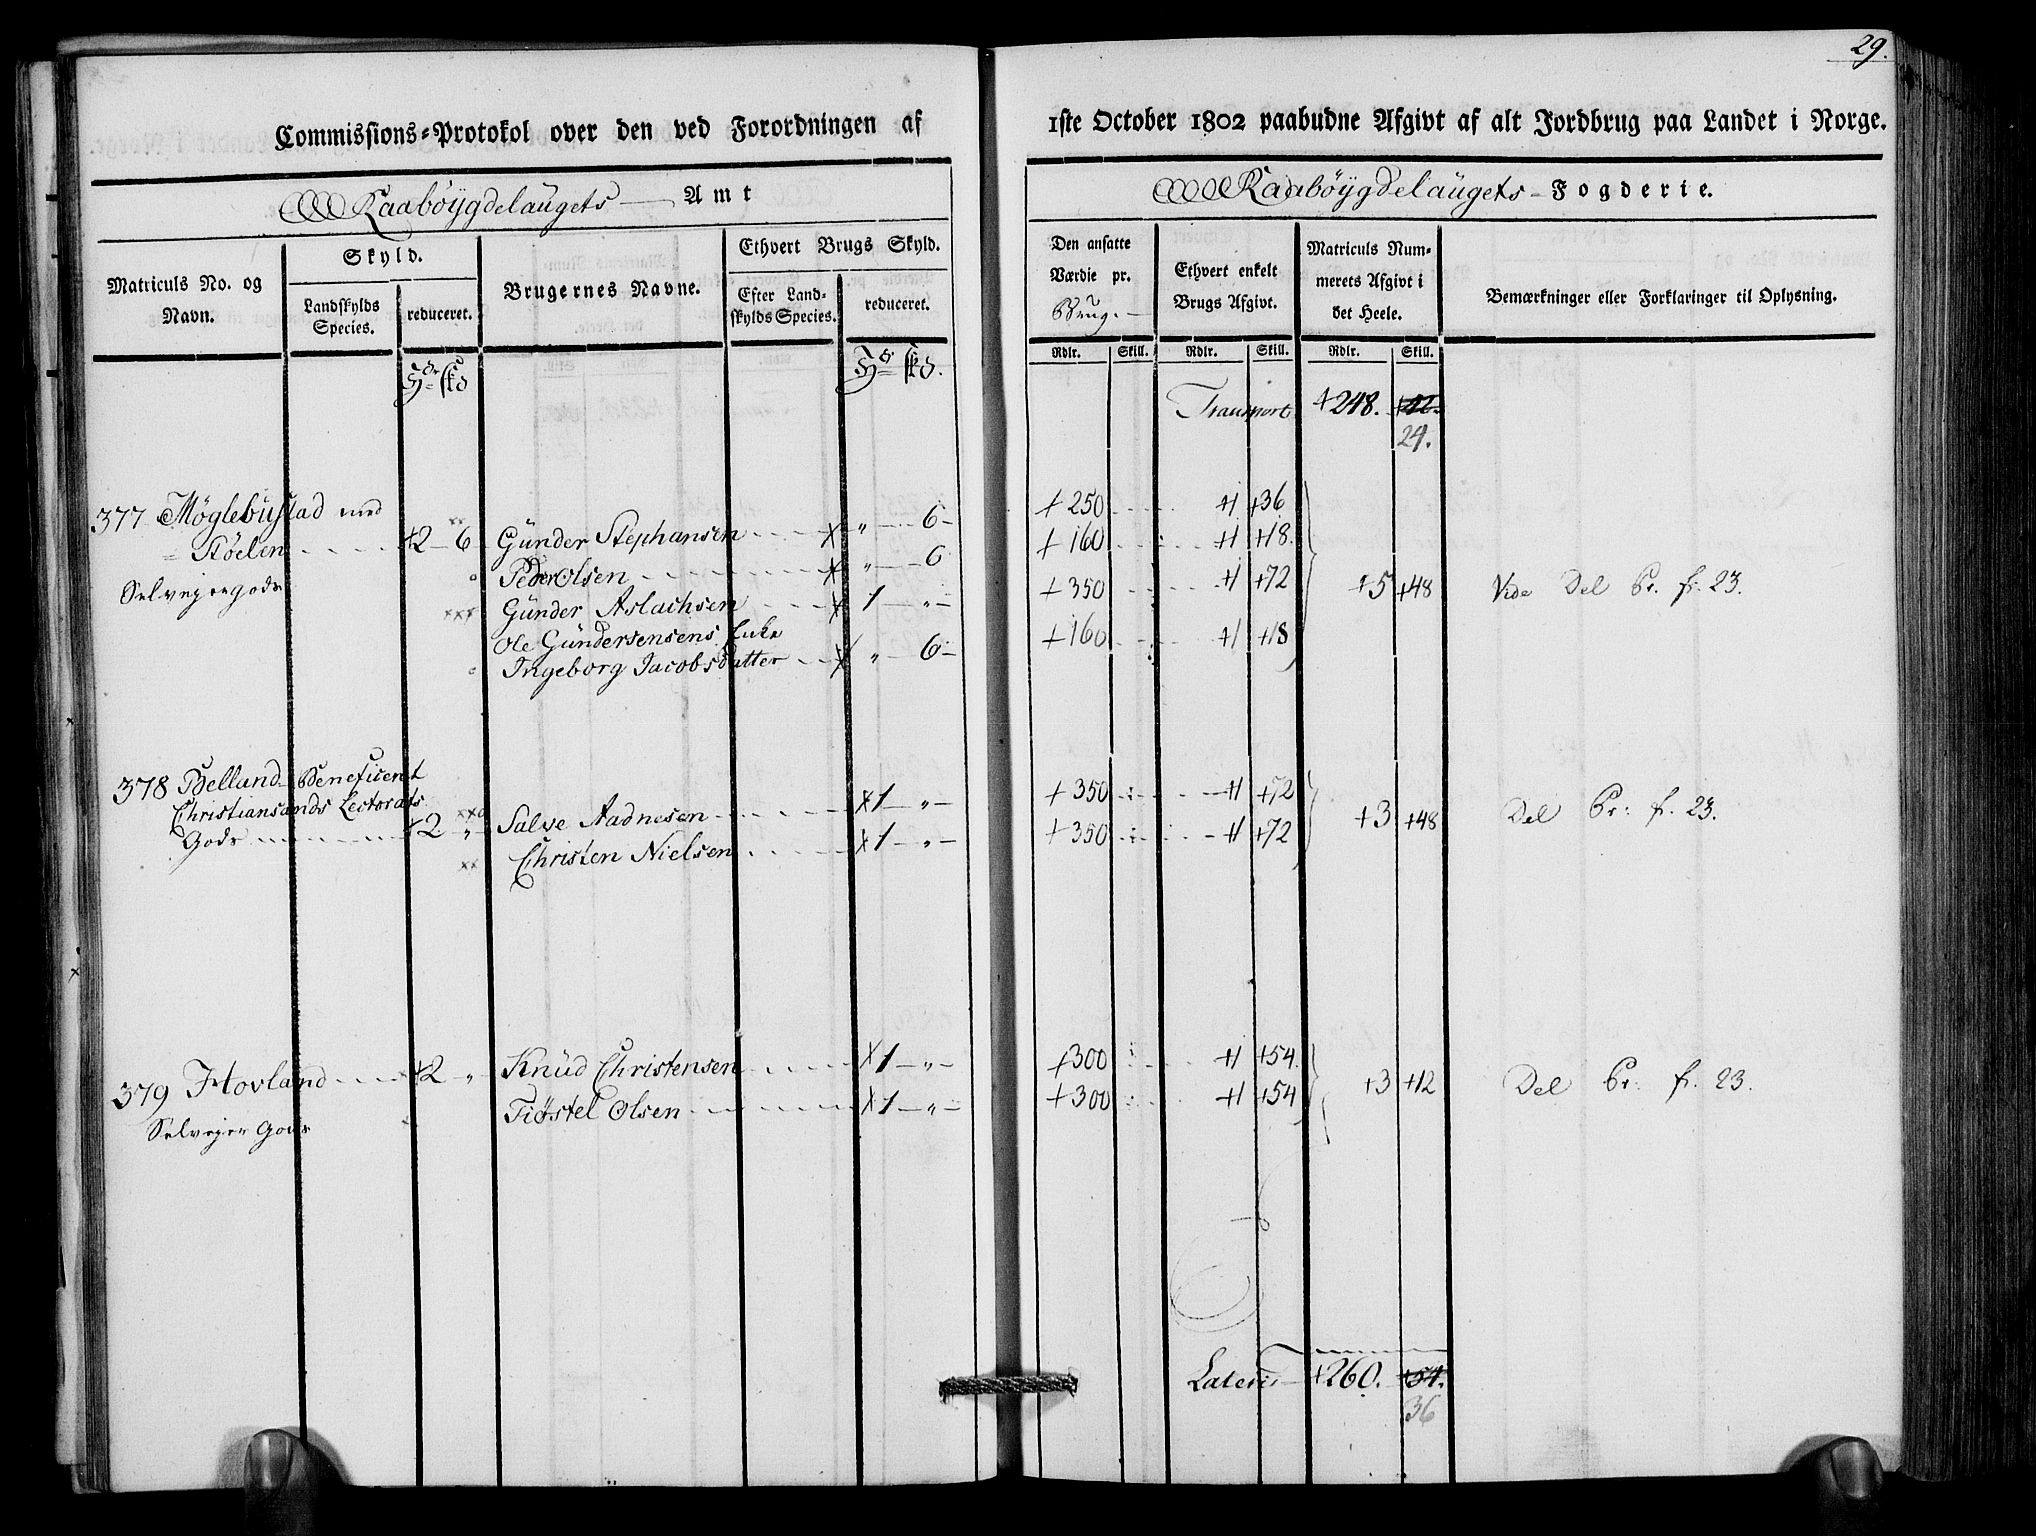 29.
Commissions-Protokol over den ved Forordningen af 1ste October 1802 paabudne Afgivt af alt Jordbrug paa Landet i Norge.
Raabøygdelaugets Amt
Raabøygdelaugets Fogderie.
Matriculs No. og Navn.
Skyld.
Landskylds Species.
reduceret.
Brugernes Navne.
Ethvert Brugs Skyld.
Efter Landskylds Species.
reduceret.
Den ansatte Værdie pr. Brug.
Ethvert enkelt Brugs Afgivt.
Matriculs Nummerets Afgivt i det Heele.
Bemærkninger eller Forklaringer til Oplysning.
Rdlr. Skill. Rdlr. Skill. Rdlr. Skill.
Transport +248. +42.
24.
377 Møglebustad med
Støelen +2 - 6
Selveyergods
Günder Stephansen x " - 6 - +250 +1 +36
Peder Olsen x " - 6 +160 +1 +18.
Günder Aslachsen x 1 - " - +350 +1 +72 +5 +48 Vide Del Pr. fr. 23.
Ole Gündersensens Enke
Ingeborg Jacobsdatter x " 6 - +160 +1 +18
378 Belland Beneficeret
Christiansands Lectorats
Gods +2 "
Salve Aadnesen x1 - " - +350 +1 +72
Christen Nielsen x1 - " - +350 +1 +72 +3 +48 Del Pr: fr. 23.
379 Hovland +2 - "
Selveyer Gods
Knüd Christensen x1 - " - +300 +1 +54.
Tiøstel Olsen x1 - " - +300 +1 +54 +3 +12 Del Pr: fr. 23.
Lateris +260. +54.
36